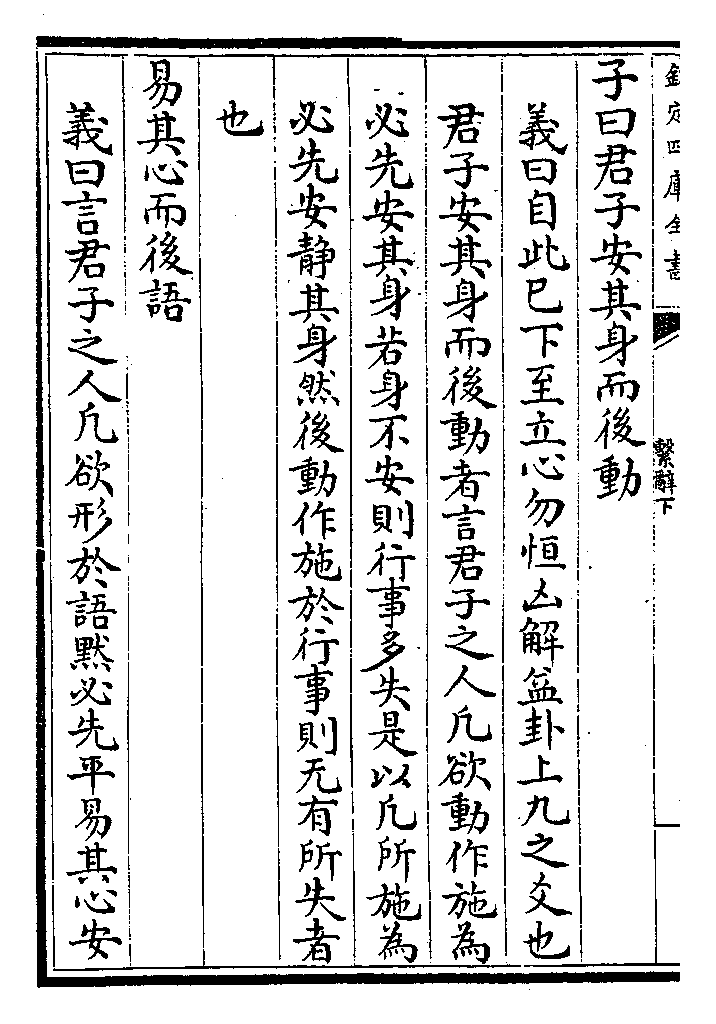 欽定四庫全書
繫辭下
子曰君子安其身而後動
義曰自此已下至立心勿恒凶解益卦上九之爻也
君子安其身而後動者言君子之人凢欲動作施為
必先安其身若身不安則行事多失是以凢所施為
必先安静其身然後動作施於行事則无有所失者
也
易其心而後語
義曰言君子之人凢欲形於語黙必先平易其心安